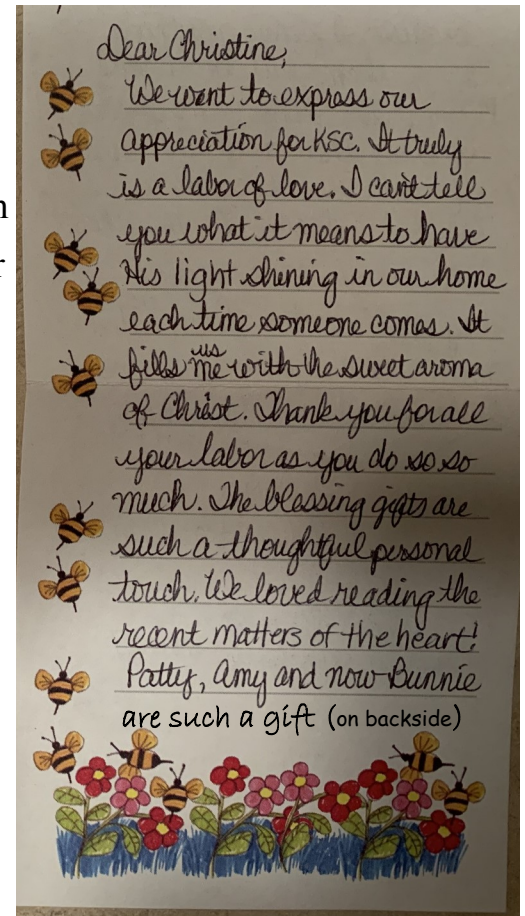 Dear Christine,
We want to express our
appreciation for KSC. It truly
is a labor of love. I can't tell
you what it means to have
His light shining in our home
each time someone comes. It
us
fills me with the sweet aroma
of Christ. Thank you for all
your labor as you do so so
much. The blessing gifts are
such a thoughtful personal
touch. We loved reading the
recent matters of the heart!
Patty, Amy and now Bunnie
are such a gift (on backside)